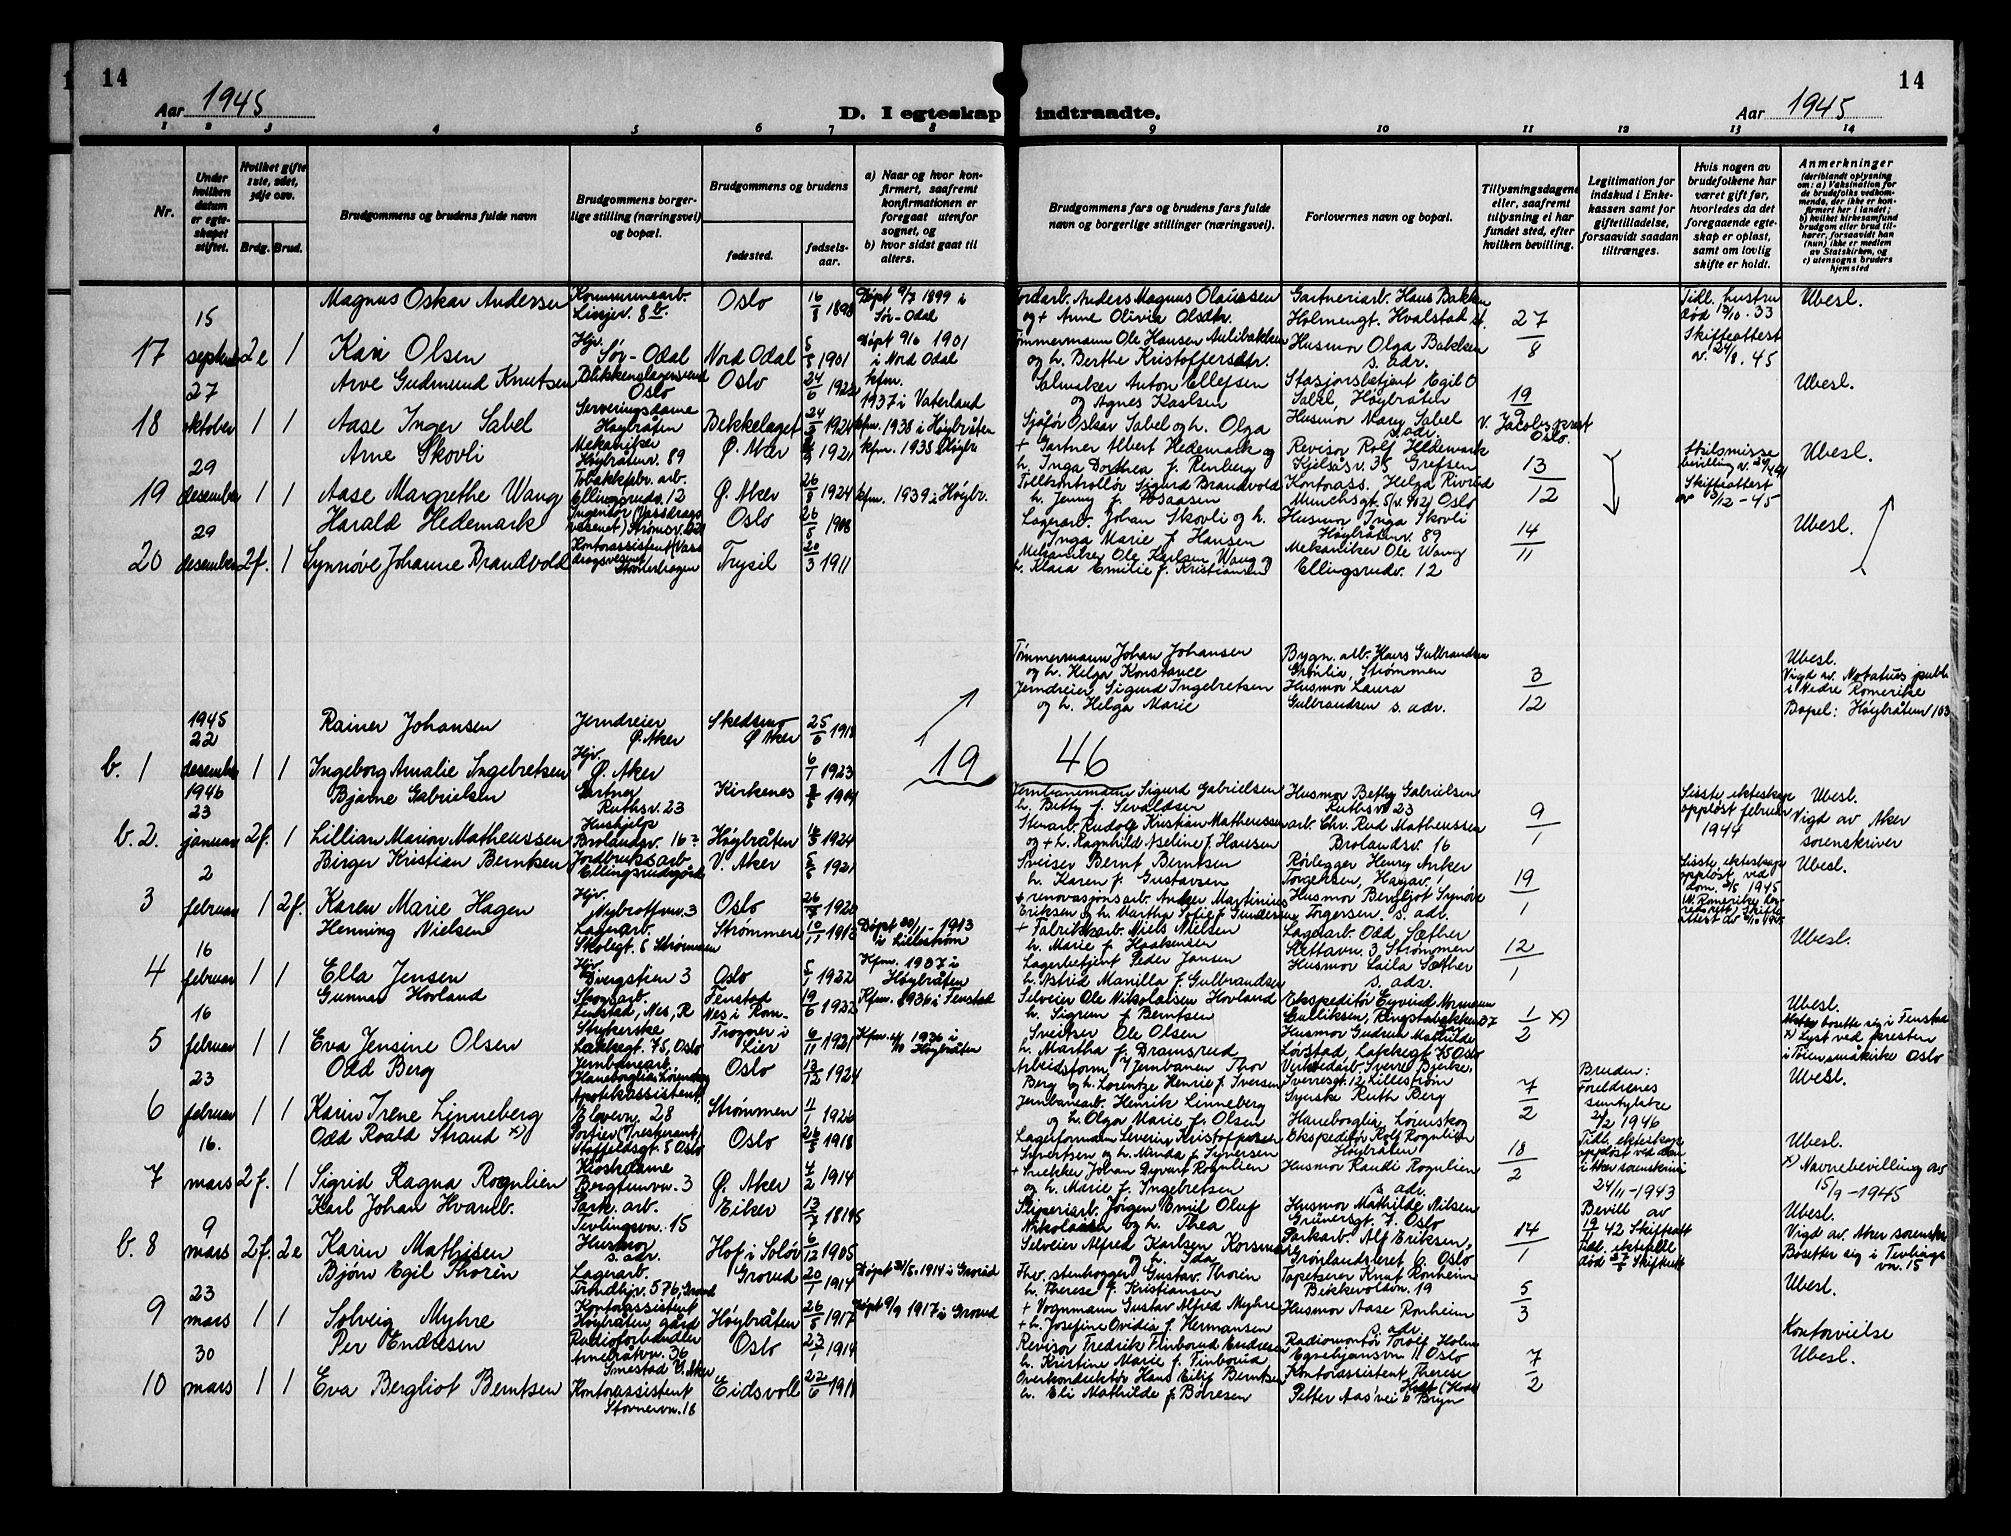 14
14
Aar 1945
D. I egteskap indtraadte.
Aar 1945
1 2 3 4 5 6 7 8 9 10 11 12 13 14
Nr.
Under hvilken datum er egteskapet stiftet.
Hvilket gifte 1ste, 2det, 3dje osv.
Brdg. Brud.
Brudgommens og brudens fulde navn
Brudgommens borgerlige stilling (næringsvei) og bopæl.
Brudgommens og brudens
fødested.
fødselsaar.
a) Naar og hvor konfirmert, saafremt konfirmationen er foregaat utenfor sognet, og
b) hvor sidst gaat til alters.
Brudgommens fars og brudens fars fulde navn og borgerlige stillinger (næringsvei).
Forlovernes navn og bopæl.
Tillysningsdagene eller, saafremt tillysning ei har fundet sted, efter hvilken bevilling.
Legitimation for indskud i Enkekassen samt for giftetilladelse, forsaavidt saadan tiltrænges.
Hvis nogen av brudefolkene har været gift før, hvorledes da det foregaaende egteskap er opløst, samt om lovlig skifte er holdt.
Anmerkninger
(deriblandt oplysning om: a) Vaksination for de brudefolks vedkommende, der ikke er konfirmert her i landet; b) hvilket kirkesamfund brudgom eller brud tilhører, forsaavidt han (hun) ikke er medlem av Statskirken, og c) utensogns bruders hjemsted
17 15 september 2e 1
Magnus Oskar Andersen Kommunearb. Linjev. 8b. Oslo 16/8 1898 Døpt 9/7 1899 i Sør-Odal
Kari Olsen Hjv. Sør-Odal Nord Odal 1901 Døpt 9/6 1901 i Nord Odal
Anders Magnus Olaussen og + Anne Olivia Olsdtr. Gartneriarb. Hans Bakken Holmengt. Hvalstad st. 27/8 Tidl. hustru død 13/10.33 Skifteattest av 24/8.45 Ubesl.
Tømmermann Ole Hansen Aulibakken og h. Berthe Kristoffersdtr. Husmor Olga Bakken s. adr.
18 27 oktober 1 1
Arve Gudmund Knutsen Blikkenslagersvend Oslo Oslo 24/6 1922 kfm. 1937 i Vaterland
Aase Inger Sabel Serveringsdame Høybråten Bekkelaget 1924 kfm. 1938 i Høybråten
Salmaker Anton Ellefsen og Agnes Karlsen Stasjonsbetjent Egil O Sabel, Høybråten 19/9 v. Jacobs prest Oslo. Ubesl.
Sjåfør Oskar Sabel og h. Olga Husmor Mary Sabel s. adr.
19 29 desember 1 1
Arne Skovli Mekaniker Høybråtenv. 89 Ø. Aker 1921 kfm. 1935 i Høybr.
Aase Margrethe Waug Tobakkfabr. arb. Ellingsrudv. 12 Ø. Aker 26/8 1924 kfm. 1939 i Høybr.
+ Gartner Albert Hedemark og h. Inga Dorthea f. Renberg Revisor Rolf Hedemark Kjelsåsv. 35 Grefsen 13/12 Skifteattest av 3/12-45 Ubesl.
Tollkontrollør Sigurd Brandvold h. Jenny f. Kontorass. Helga Munchsgt. 5 Oslo
20 29 desember 2f. 1
Harald Hedemark Ingeniør (Vassdragsvesenet) Oslo 26/8 1908
Synnøve Johanne Brandvold Kontorassistent Trysil 20/3 1911
Lagerarb. Johan Skovli og h. Inga Marie f. Hansen Husmor Inga Skovli Høybråtenv. 89 14/11 Ubesl.
Mekaniker Ole Karlsen Waug og h. Klara Emilie f. Kristiansen Mekaniker Ole Waug Ellingsrudv. 12
b. 1 1945 22 desember 1 1
Rainer Johansen Jerndreier Ø. Aker Skedsmo Ø. Aker 25/6 1918
Ingeborg Amalie Ingebretsen Hjv. Ø. Aker 6/1 1923
Tømmermann Johan Johansen og h. Helga Konstance Bygn. arb. Hans Gulbrandsen Grønlia, Strømmen 3/12 Ubesl. Vigd av Notarius publ. i Nedre Romerike Bopel: Høybråtenv. 103
Jerndreier Sigurd Ingebretsen og h. Helga Marie Husmor Laura Gulbrandsen s. adr.
19 46
b. 2. 1946 23 januar 2f. 1
Bjarne Gabrielsen Gartner Ruthsv. 23 Kirkenes 1914
Lillian Marion Matheussen Hushjelp Brolandsv. 16 Høybråten 1924
Jernbanemann Sigurd Gabrielsen h. Betty f. Sevaldsen Husmor Bethy Gabrielsen Ruthsv. 23 9/1 Siste ekteskap oppløst februar 1944 Ubesl. Vigd av Aker sorenskriver
Rudolf Kristian Matheussen og + h. Ragnhild Aseline f. Hansen arb. Chr. Rud Matheussen Brolandsv. 16
3 2 februar 1 2f.
Birger Kristian Berntsen Jordbruksarb. Ellingsrudgård V. Aker 1921
Karen Marie Hagen Hjv. Nybrottvn. 3 Oslo 26/7 1920
Sveiser Bernt Berntsen h. Karen f. Gustavsen Rørlegger Henry Anker Torgersen, Hagav. 1 19/1 Siste ekteskap oppløst ved dom. 1945 Ubesl.
+ renovasjonsarb. Anders Martinius Eriksen og h. Martha Sofie f. Gundersen Husmor Bergljot Synøve Torgersen. s. adr.
4 16 februar 1 1
Henning Nielsen Lagerarb. Skolegt. 8 Strømmen Strømmen 10/11 1913 Døpt 30/11-1913 i Lillestrøm
Ella Jensen Hjv. Divergstien 3 Oslo 5/1 1922 Kfm. 1937 i Høybråten
+ Fabrikkarb. Niels Nielsen h. Marie f. Haakensen Lagerarb Odd Sæther Slettavn. 3 Strømmen 12/1 Ubesl.
Lagerbetjent Peder Jansen h. Astrid Manilla f. Gulbrandsen Husmor Laila Sæther s. adr.
5 16 februar 1 1
Gunnar Hovland Skogsarb. Fenstad, Nes, R Fenstad Nes i Rom- 19/6 1922 Kfm. 1936 i Fenstad
Eva Jensine Olsen Strykerske Lakkegt. 75, Oslo Tragner i Lier 6/11 1921 Kfm. 1936 i Høybråten
Selveier Ole Nikolaisen Hovland h. Sigrun f. Berntsen Ekspeditør Eyvind Normann Gulliksen, Ringstabekken 1/2 x) Ubesl. bosette sig i Fenstad x) Lyst ved presten i Tøien småkirke Oslo
Sveitser Ole Olsen h. Martha f. Dramsrud Husmor Gudrun Mathilde Løvstad, Lakkegt. 75 Oslo
6 23 februar 1 1
Odd Berg Jernbanearb. Haneborglia, Lørenskog Oslo 13/12 1924
Karin Irene Linneberg Apotekassistent Elvevn. 28 Strømmen 11/1 1926
Arbeidsform. v/Jernbanen Thor Berg og h. Lorentze Henrie f. Iversen Verkstedarb. Sverre Bjerke, Sverresgt. 12 Lillestrøm 7/2 Bruden: Foreldrenes samtykke 2/2 1946 Ubesl.
Jernbanearb. Henrik Linneberg og h. Olga Marie f. Olsen Syerske Ruth Berg Haneborglia, Lørenskog
7 16. mars 2f. 1
Odd Roald Strand x) Portier (Restaurant) Stoffeldsgt. 5 Oslo Oslo 26/8 1918
Sigrid Ragna Rognlien Kioskdame Bergtunvn. 3 Ø. Aker 4/2 1914
Lagerformann Severin Kristoffersen Syvertsen og h. Minda f. Syversen Ekspeditør Rolf Rognlien Høybråten 18/2 Tidl. ekteskap oppløst ved dom i Aker sorenskriveri 24/11-1943 Ubesl. x) Navnebevilling av 15/9-1945
+ Snekker Johan Dyvart Rognlien og h. Marie f. Ingebretsen Husmor Randi Rognlien s. adr.
b. 8 9 mars 2f. 2e
Karl Johan Hvamb. Park. arb. Tevlingsvn. 15 Eiker 13/7
Karin Mathisen Husmor s. adr. Hof i Solør 6/12 1905
Sliperiarb. Jørgen Emil Oluf Nikolaisen og h. Thea Husmor Mathilde Nilsen Grünersgt. 7. Oslo 14/1 Bevill av 19/2 42 Skifteatt. Tidl. ektefelle død Skifteatt Ubesl. Vigd av. Aker sorenskr. Bosetter sig i Tevlingsvn. 15
Selveier Alfred Karlsen Korsmo og h. Ida Parkarb. Alf Eriksen, Grønlandsleret 6. Oslo
9 23 mars 1 1
Bjørn Egil Thorén Lagerarb. Trondhjv. 576, Grorud Grorud 20/1 1914 Døpt 31/5.1914 i Grorud
Solveig Myhre Kontorassistent Høybråten gård Høybråten 26/5 1917 Døpt 9/9 1917 i Grorud
Fhv. stenhogger Gustav Thorén h. Therese f. Kristiansen Tapetserer Knut Ronheim Bjerkevoldvn. 19 5/3 Ubesl.
+ Vognmann Gustav Alfred Myhre + h. Josefine Ovidia f. Hermansen Husmor Aase Ronheim s. adr.
10 30 mars 1 1
Per Endresen Radioforhandler Arnebråtvn. 36 Smestad V. Aker Oslo 23/1 1914
Eva Bergliot Berntsen Kontorassistent Stovnervn. 18 Eidsvoll 22/6 1911
Revisor Fredrik Finborud Endresen h. Kristine Marie f. Finborud Radiomontør Torolf Holm Egnehjemsvn. 11 Oslo 7/2 Kontorvielse Ubesl.
Overkonduktør Hans Eilif Berntsen h. Eli Mathilde f. Børesen Kontorassistent Therese Petter Aas'vei 6 Bryn